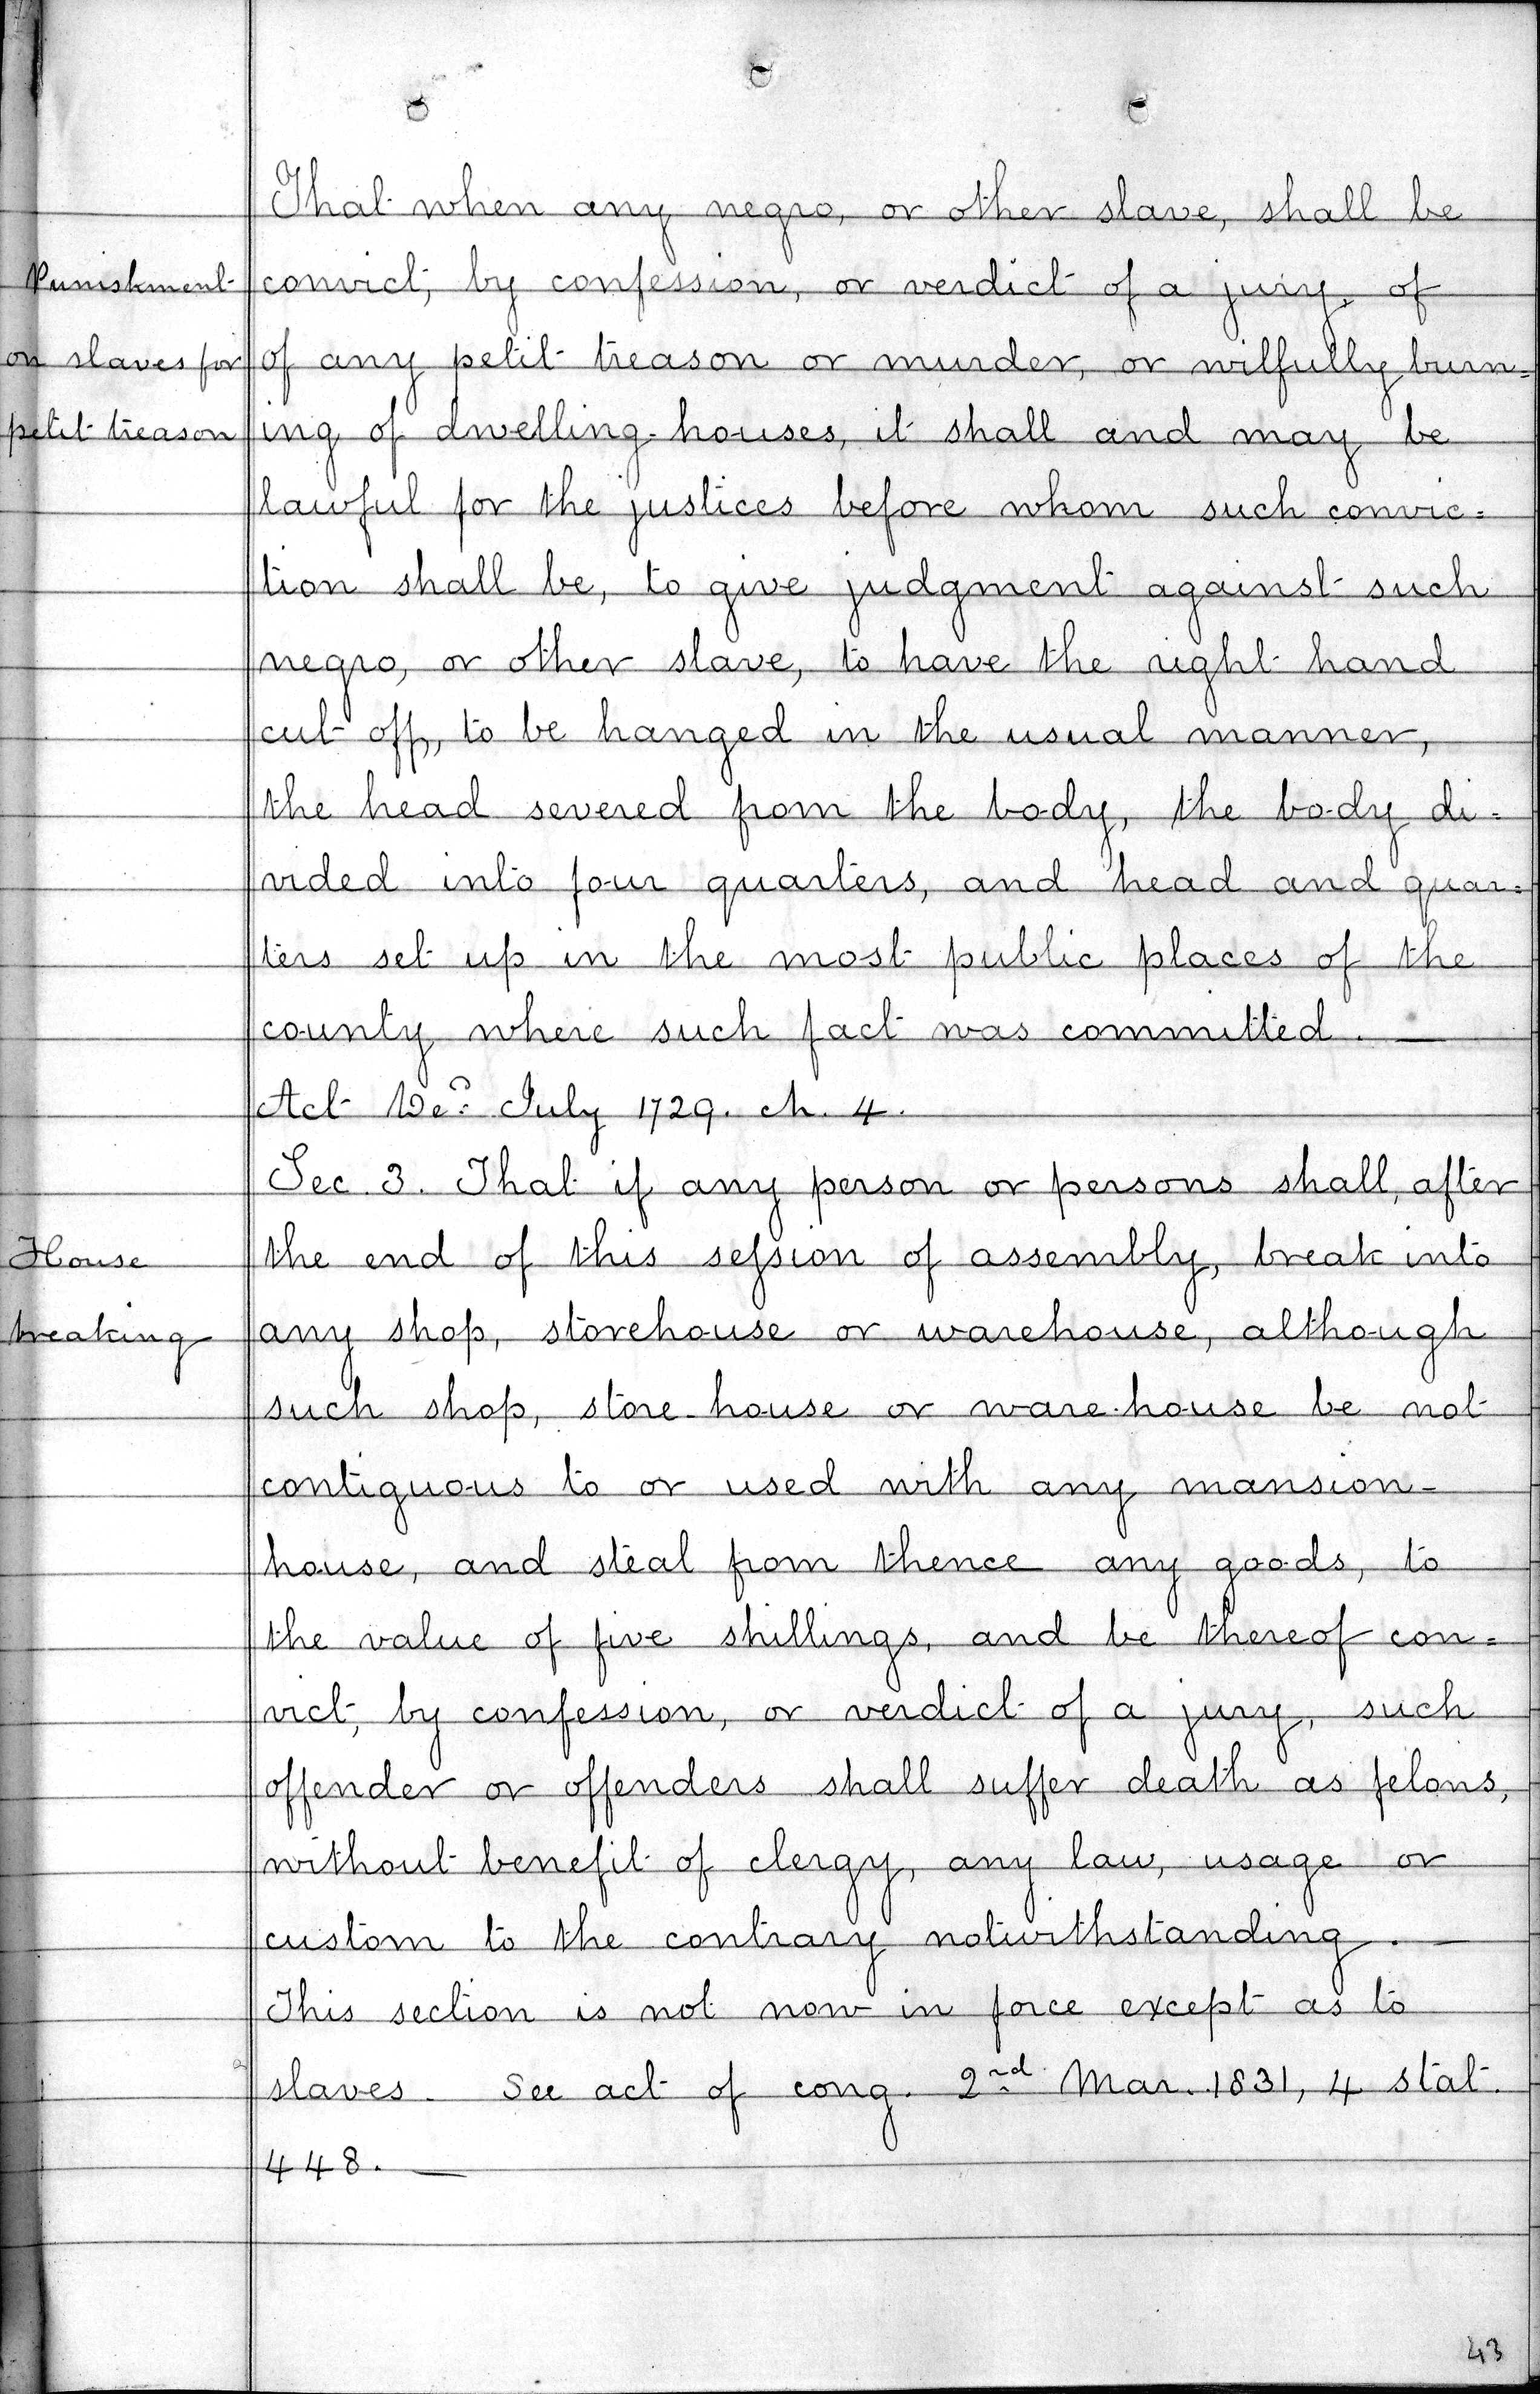 That when any negro, or other slave, shall be
Punishment convict, by confession, or verdict of a jury, of
on slaves for of any petit treason or murder, or wilfully burn=
petit treason ing of dwelling-houses, it shall and may be
lawful for the justices before whom such convic=
tion shall be, to give judgment against such
negro, or other slave, to have the right hand
cut off, to be hanged in the usual manner,
the head severed from the body, the body di=
vided into four quarters, and head and quar=
ters set up in the most public places of the
county where such fact was committed. —
Act July 1729. ch. 4.
Sec. 3. That if any person or persons shall, after
House the end of this session of assembly, break into
breaking any shop, storehouse or warehouse, although
such shop, store-house or ware-house be not
contiguous to or used with any mansion-
house, and steal from thence any goods, to
the value of five shillings, and be thereof con=
vict, by confession, or verdict of a jury, such
offender or offenders shall suffer death as felons,
without benefit of clergy, any law, usage or
custom to the contrary notwithstanding. —
This section is not now in force except as to
slaves. See act of cong. 2nd Mar. 1831, 4 stat.
448. —
43